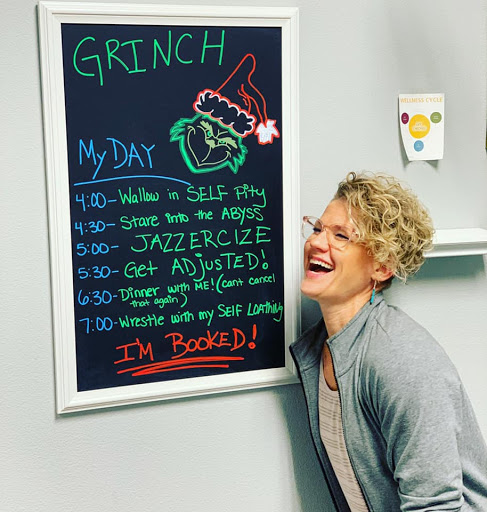 GRINCH
My DAY
4:00- Wallow in SELF Pity
4:30- Stare into the ABYSS
5:00- JAZZERCIZE
5:30- Get ADjusTED!
6:30- Dinner with ME! (cant cancel
that again)
7:00- Wrestle with my SElF LOATHING
I'M BOOKED!
WELLNESS CYCLE